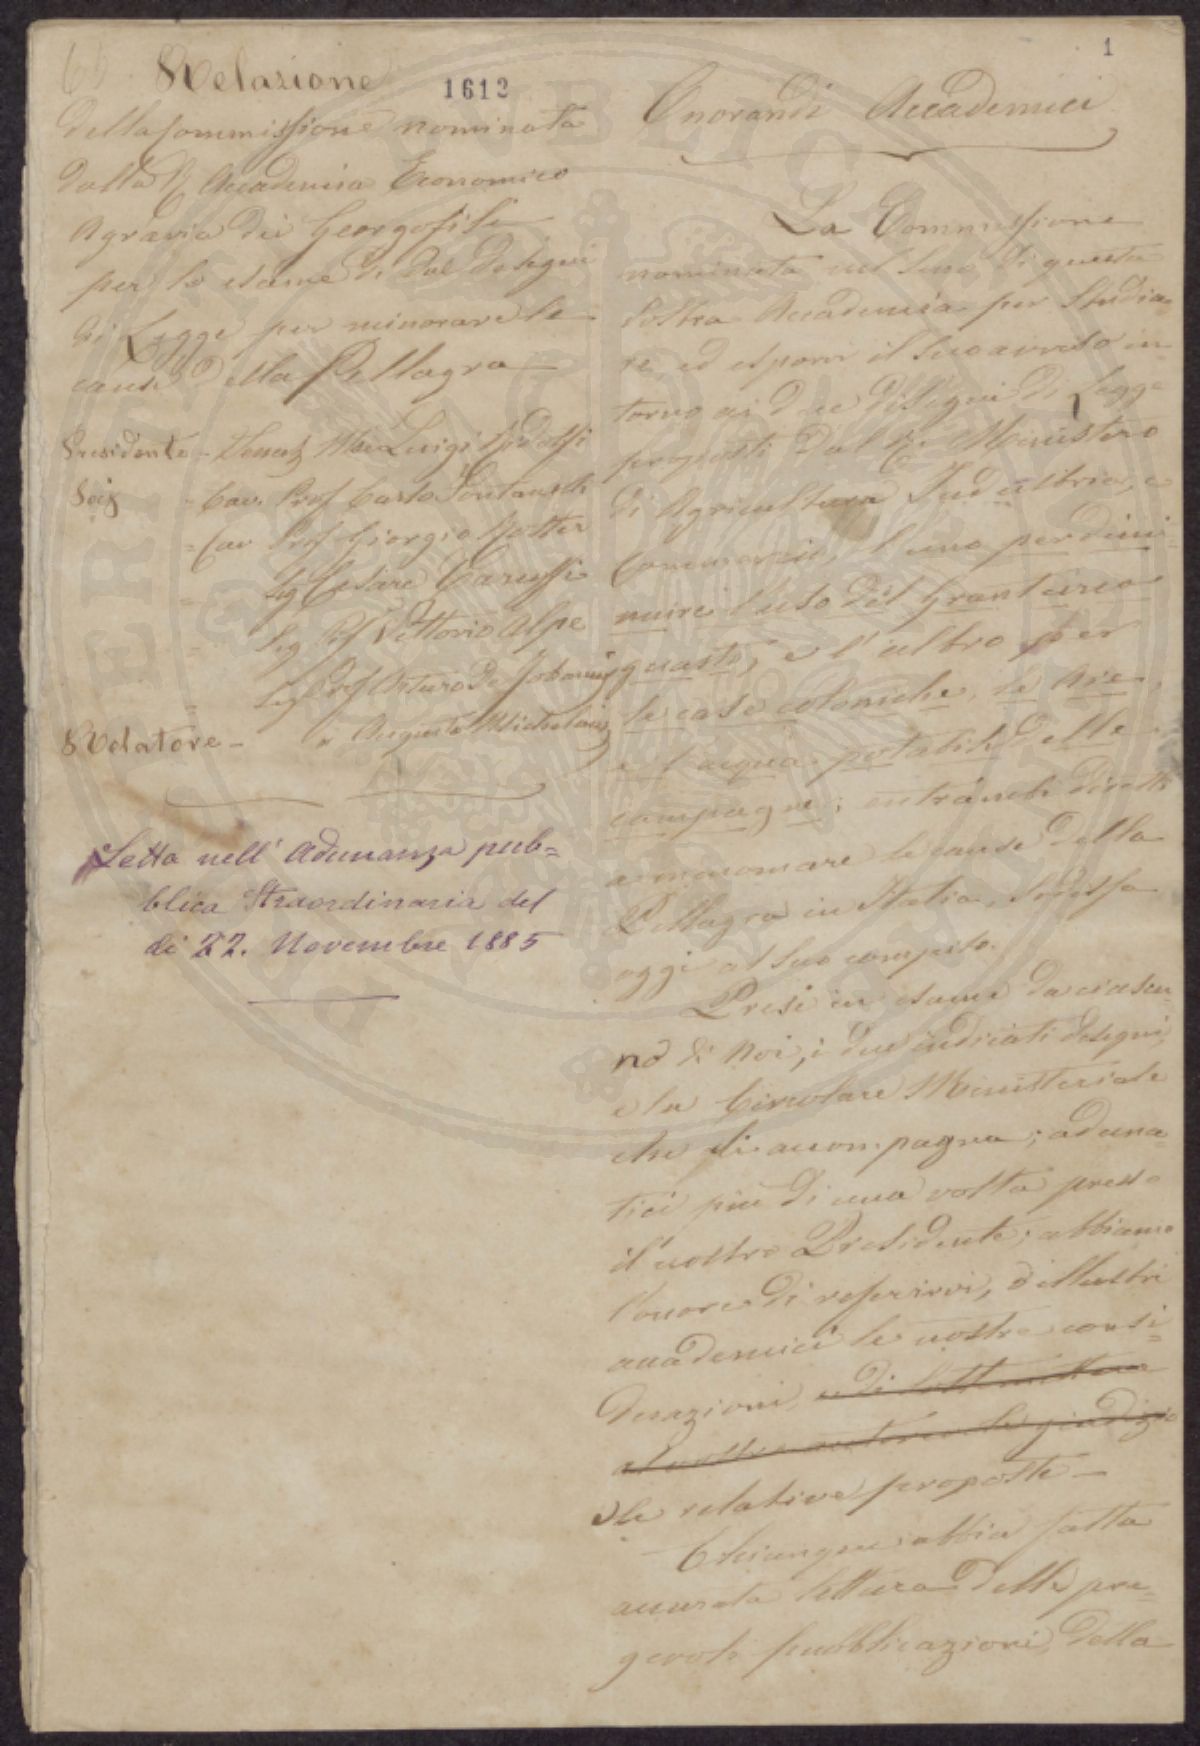 1
1612
Relazione
della Commissione nominata
dalla R. Accademia Economico
Agraria dei Georgofili
per lo esame di due disegni
di Legge per minorare le
cause della Pellagra
Presidente - March. Luigi Ridolfi
Socj = Cav. Prof. Carlo Fontanelli
= Cav Prof Giorgio Roster
= Sig Cesare Taruffi
= Sig Pf Vittorio Alpe
= Sig Prof Arturo De Johannis
Relatore - " Augusto Michelacci
Letta nell' Adunanza pub=
blica Straordinaria del
di 22. Novembre 1885
Onorandi Accademici
La Commissione
nominata nel seno di questa
Vostra Accademia per studia=
re, ed esporvi il suo avviso in=
torno ai due disegni di Legge
proposti dal R. Ministero
di Agricoltura Industria, e
Commercio, l'uno per dimi=
nuire l'uso del Granturco
guasto, e l'altro per
le case coloniche, le Aie,
e l'acqua potabile delle
campagne; entrambi diretti
a menomare le cause della
Pellagra in Italia, sodisfa
oggi al suo compito.
Presi in esame da ciascu=
no di Noi, i due indicati disegni,
e la Circolare Ministeriale
che li accompagna; aduna=
tici più di una volta presso
il nostro Presidente; abbiamo
l'onore di riferirvi, o illustri
accademici le nostre consi=
derazioni, e di sottomettere
al vostro autorevole giudizio
e le relative proposte -
Chiunque abbia fatta
accurata lettura delle pre=
gevoli pubblicazioni, della